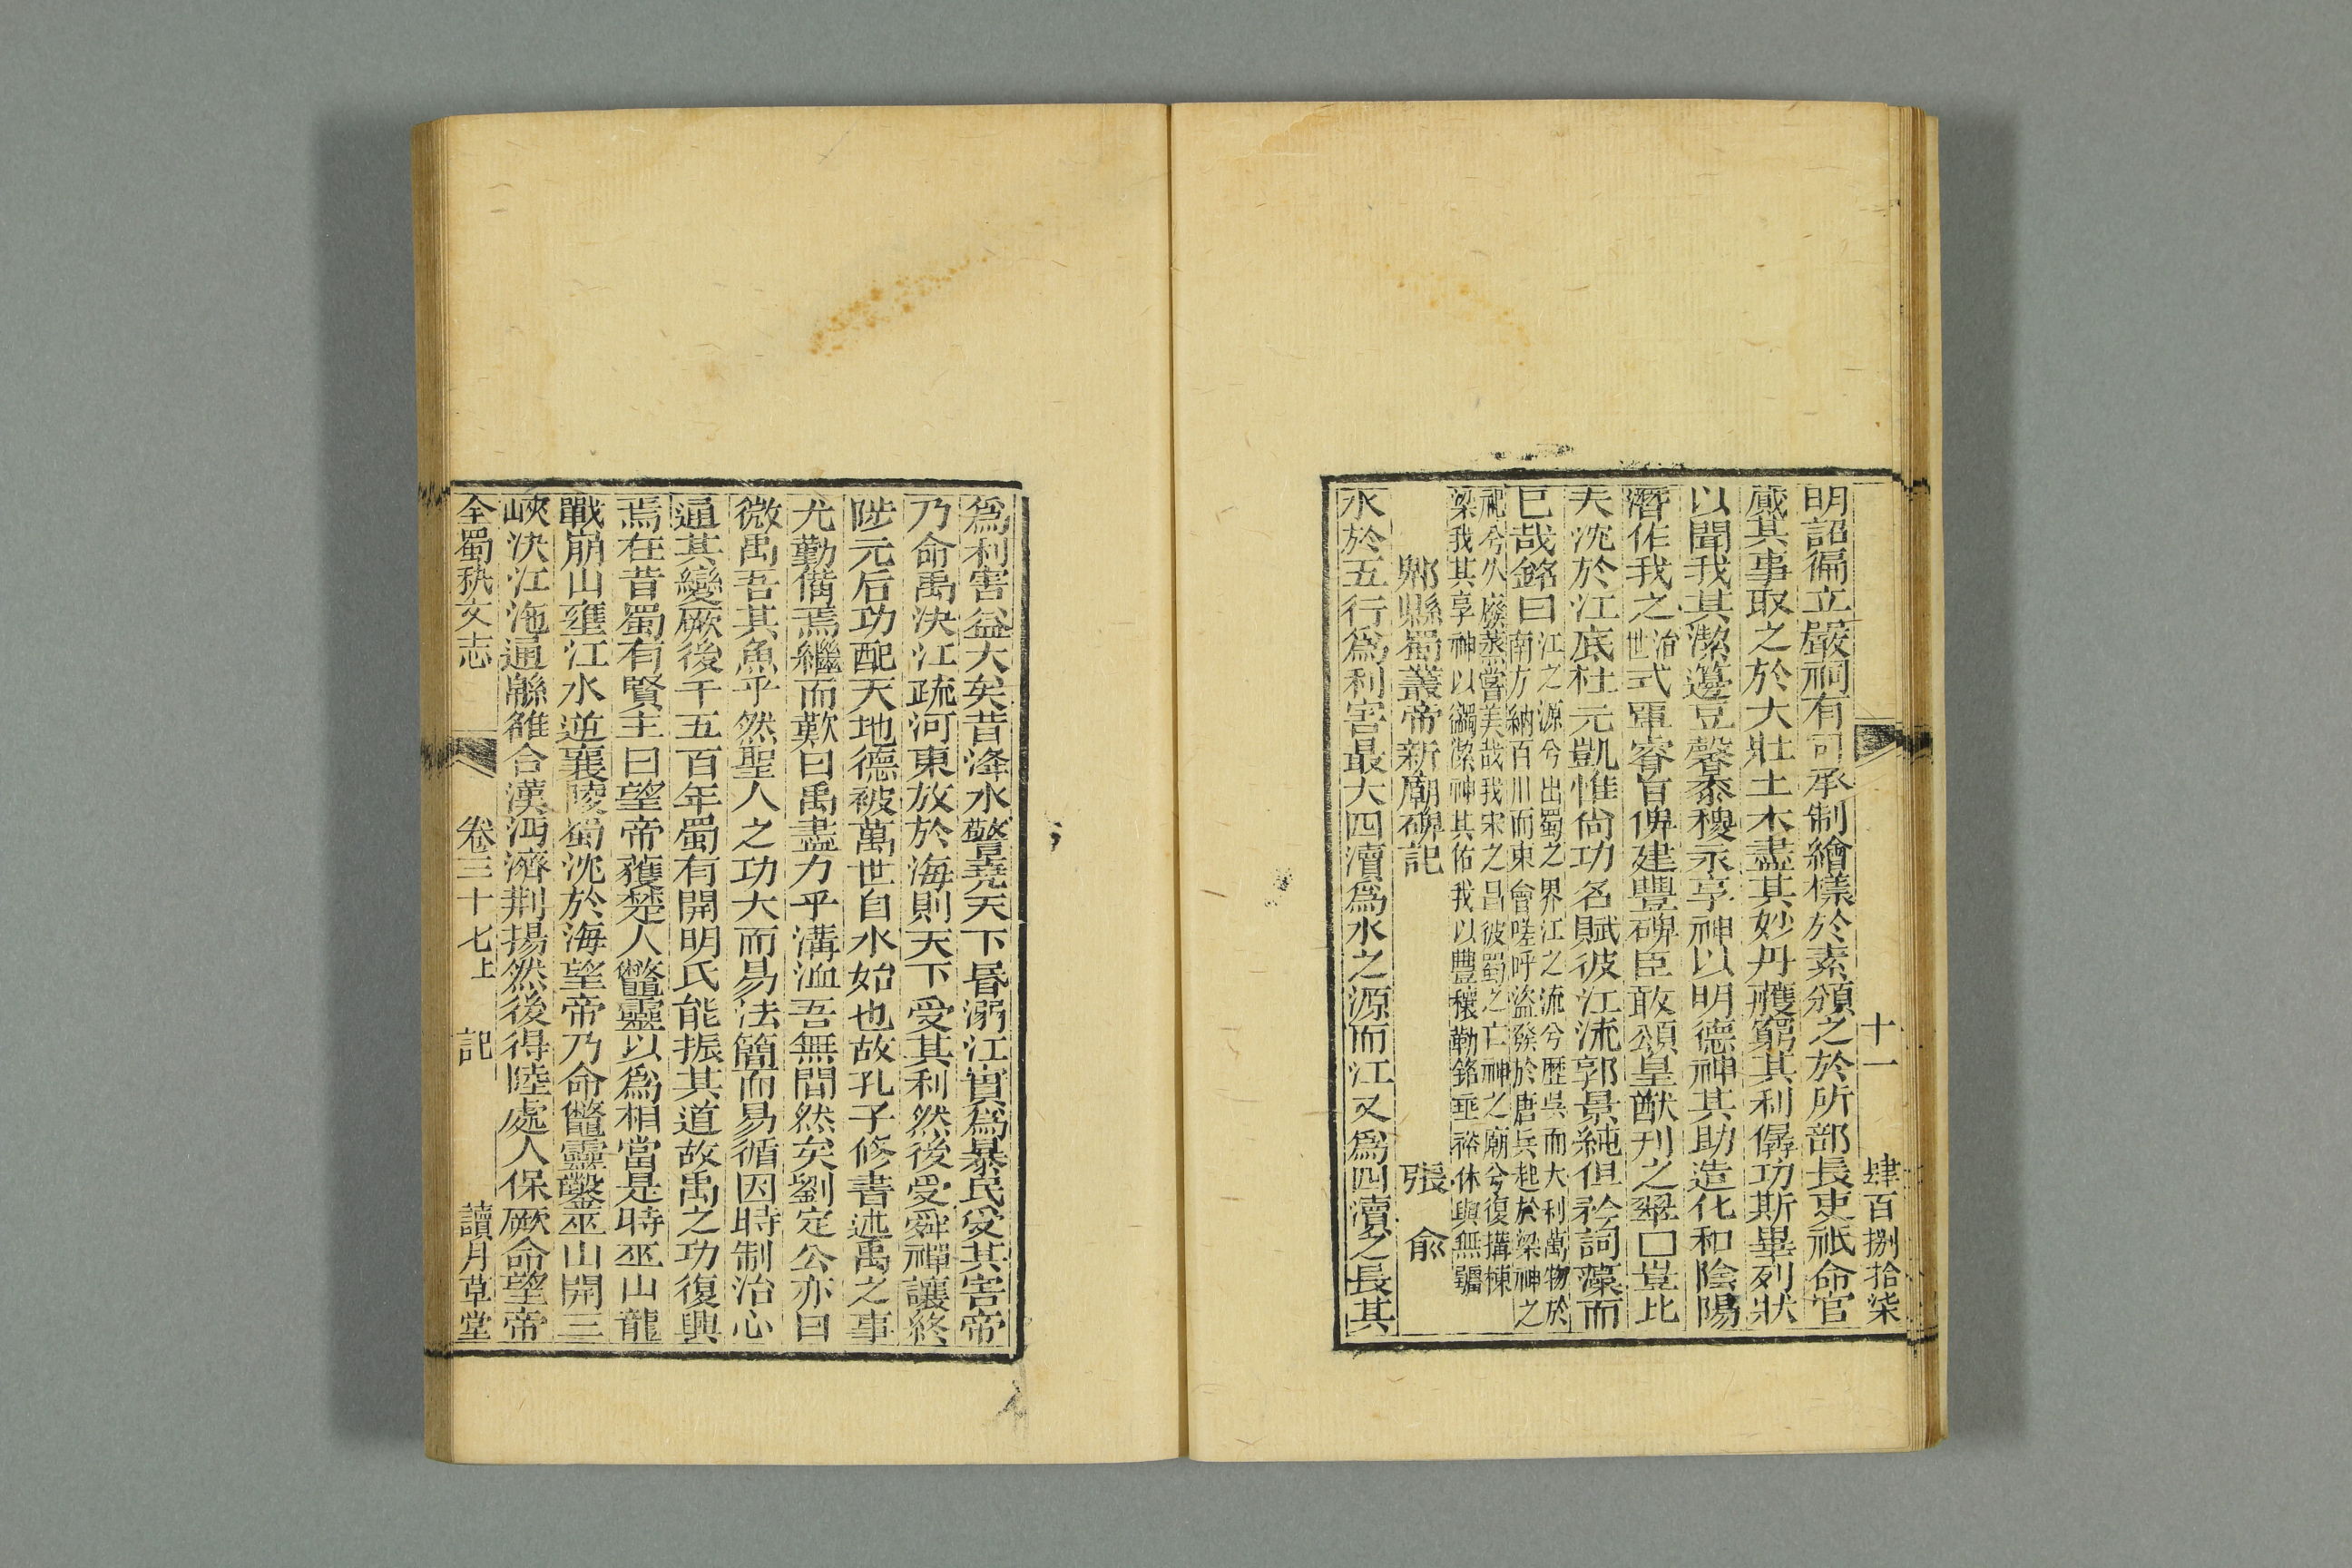 十一 肆百捌拾柒
明詔徧立嚴祠有司承制繪㨾於素頒之於所部長吏祇命官
厳其事取之於大壯土木盡其妙丹雘窮其利僝功斯畢列狀
以聞我其潔籩豆馨黍稷永享神以明德神其助造化和陰陽
潛作我之治世式覃睿旨俾建豐碑臣敢頌皇猷刋之翠□豈比
夫沈於江底杜元凱惟尙功名賦彼江流郭景純但矜詞藻而
巳哉銘曰江之源兮出蜀之界江之流兮歷吳而大利萬物於
南方納百川而東會嗟呼盜發於唐兵起於梁神之
祀兮久廢蒸嘗美哉我宋之昌彼蜀之亡神之廟兮復搆棟
梁我其享神以蠲潔神其佑我以豐穰勒銘垂裕休與無疆
郫縣蜀叢帝新廟碑記 張俞
水於五行爲利害最大四瀆爲水之源而江又爲四瀆之長其
爲利害益大矣昔洚水警堯天下昬溺江實爲暴民受其害帝
乃命禹決江疏河東放於海則天下受其利然後受舜禪讓終
陟元后功配天地德被萬世自水始也故孔子修書述禹之事
尤勤備焉繼而歎曰禹盡力乎溝洫吾無間然矣劉定公亦曰
微禹吾其魚乎然聖人之功大而易法簡而易循因時制治心
通其變厥後千五百年蜀有開明氏能振其道故禹之功復興
焉在昔蜀有賢主曰望帝獲楚人鼈靈以爲相當是時巫山龍
戰崩山壅江水逆襄陵蜀沈於海望帝乃命鼈靈鑿巫山開三
峽決江沱通緜雒合漢沔濟荆揚然後得陸處人保厥命望帝
全蜀秇文志 卷三十七上 記 讀月草堂